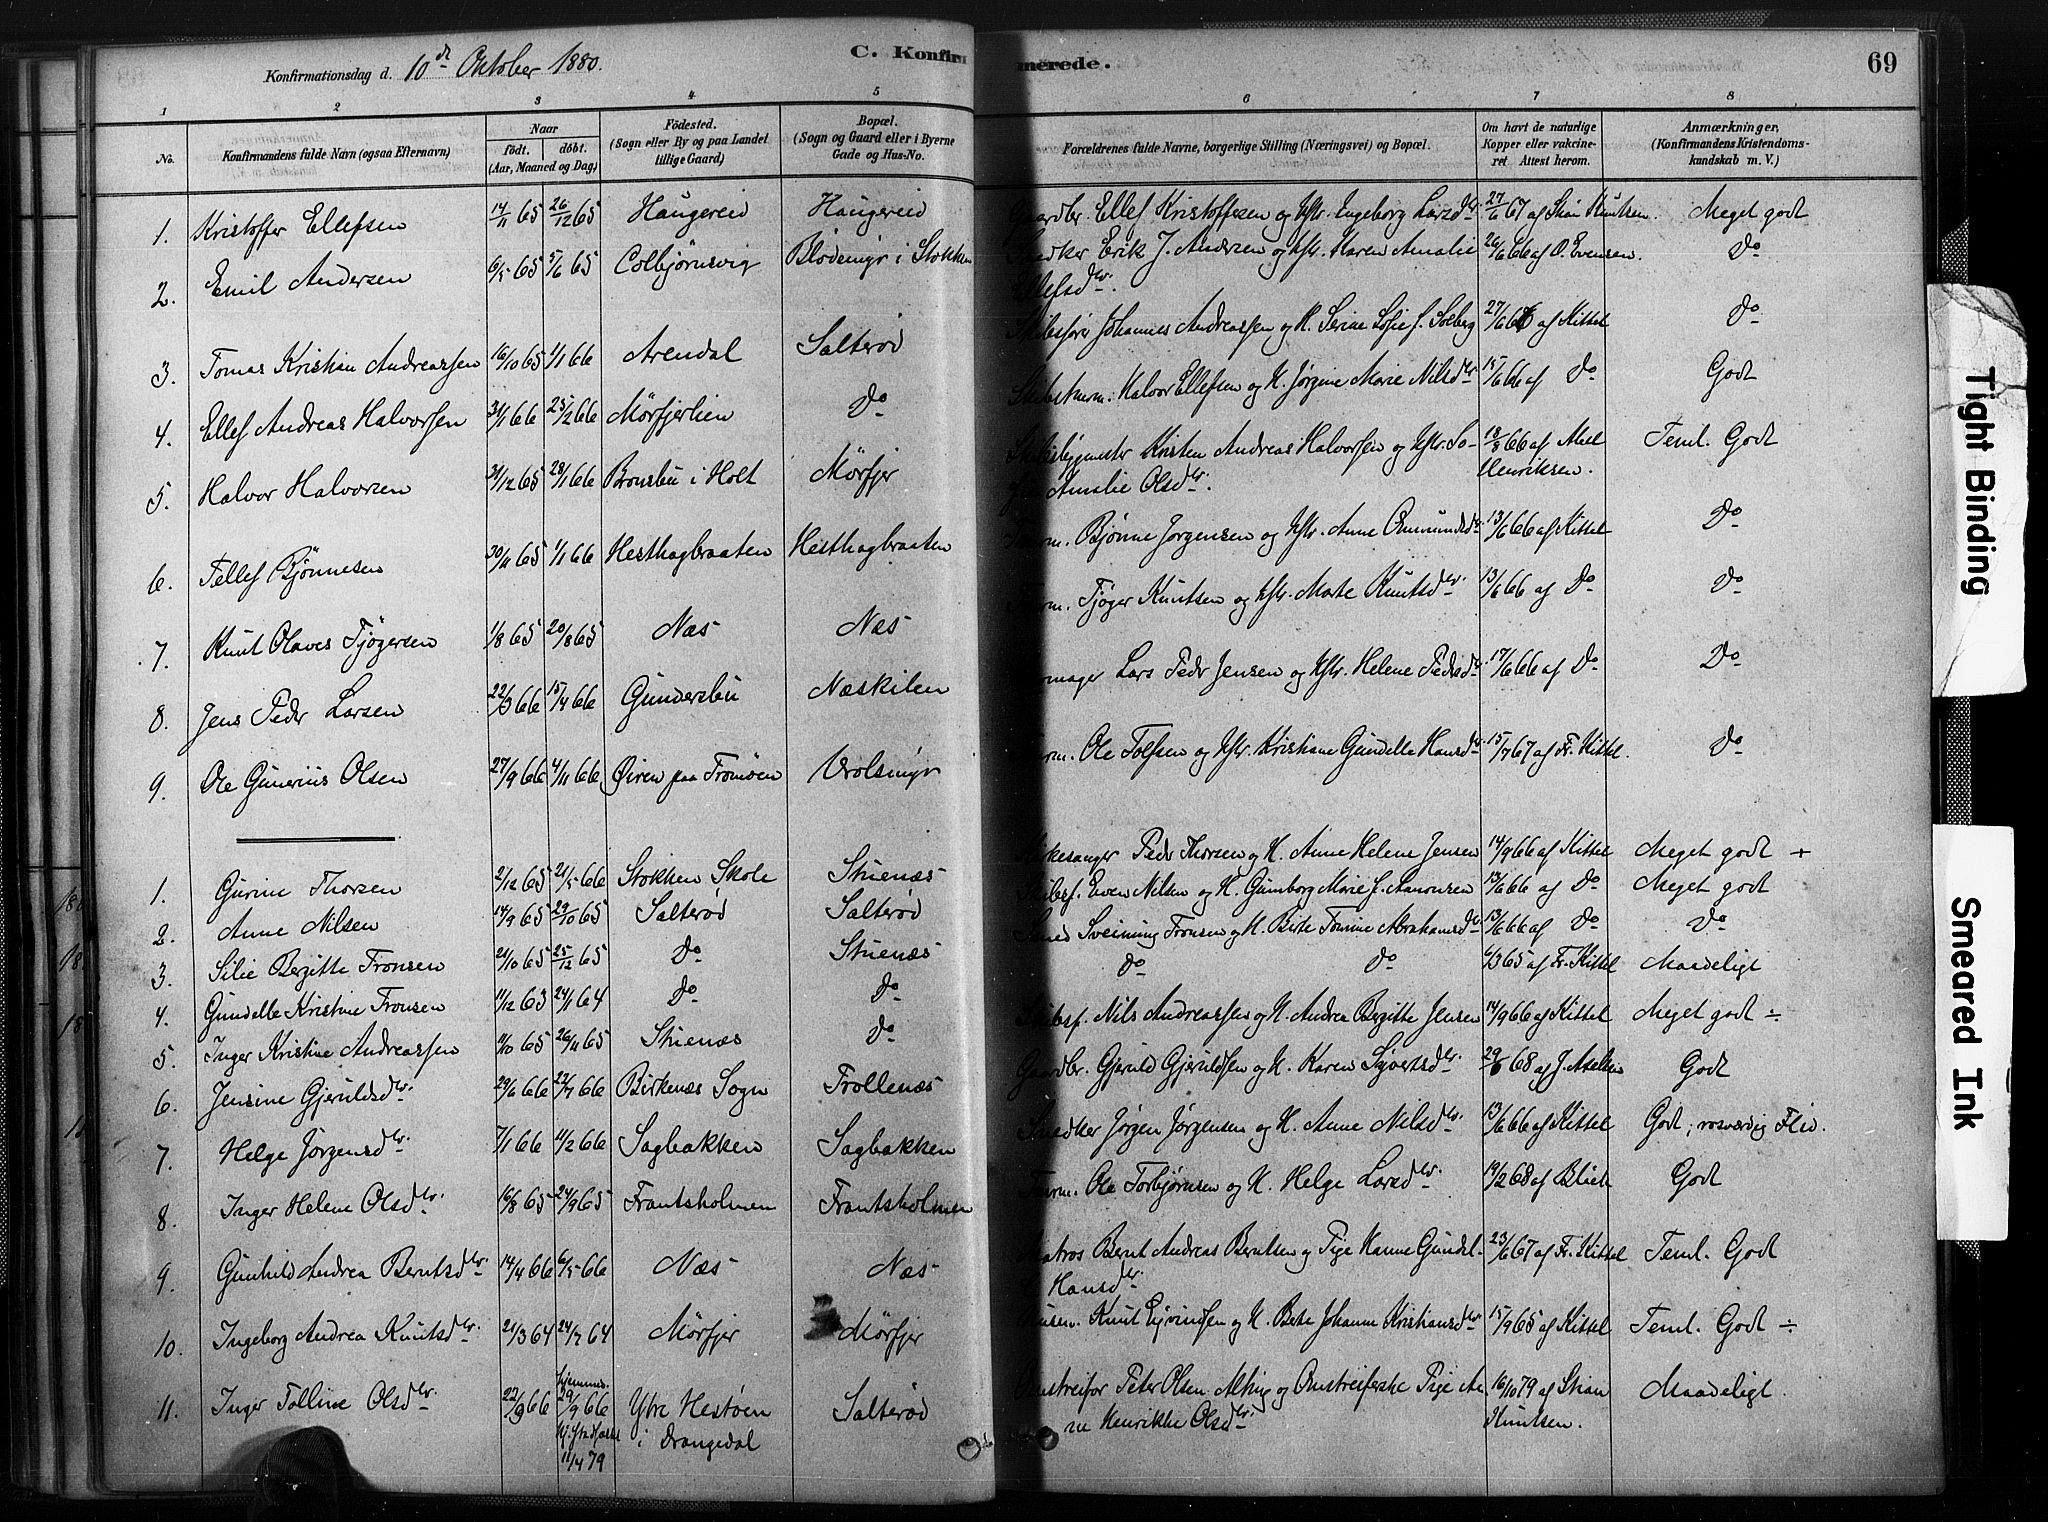 Konfirmationsdag d. 10de Oktober 1880.
C. Konfirmerede.
69
1 2 3 4 5 6 7 8
No.
Konfirmandens fulde Navn (ogsaa Efternavn)
Naar
født. døbt.
(Aar, Maaned og Dag)
Fødested.
(Sogn eller By og paa Landet
tillige Gaard)
Bopæl.
(Sogn og Gaard eller i Byerne
Gade og Hus-No.
Forældrenes fulde Navne, borgerlige Stilling (Næringsvei) og Bopæl.
Om havt de naturlige
Kopper eller vakcine-
ret. Attest herom.
Anmærkninger,
(Konfirmandens Kristendoms-
kundskab m. V.)
1. Kristoffer Ellefsen 14/11 65 26/12 65 Haugereid Haugereid Gaardbr. Ellef Kristoffersen og Hstr. Engeborg Larsdtr. 27/6 67 af Stian Knutsen. Meget godt
2. Emil Andersen 6/5 65 5/6 65 Colbjørnsvig Blødemyr i Stokken Snedker Erik J. Andersen og Hstr. Karen Amalie 26/6 66 af O. Evensen. Do
Ellefsdtr.
3. Tomas Kristian Andreassen 16/10 65 1/1 66 Arendal Salterød Skibsfører Johannes Andreassen og H. Serine Sofie f. Solberg 27/6 66 af Kittel Do
4. Ellef Andreas Halvorsen 31/1 66 25/2 66 Mørfjerlien Do Skibstmrm. Halvor Ellefsen og H. Jørgine Marie Nilsdtr. 15/6 66 af Do Godt
5. Halvor Halvorsen 31/12 65 28/1 66 Bronsbu i Holt Mørfjer Skibsbygmester Kristen Andreas Halvorsen og Hstr. So- 18/8 66 af Abel Teml. Godt
Amalie Olsdtr. Henriksen.
6. Tellef Bjønnesen 30/11 65 1/1 66 Hesthagbraaten Hesthagbraaten Tmrm. Bjønne Jørgensen og Hstr. Anne Omundsdtr. 13/6 66 af Kittel Do
7. Knut Olaves Tjøgersen 1/8 65 20/8 65 Næs Næs Tmrm. Tjøger Knutsen og Hstr. Marte Knutsdtr. 13/6 66 af Do Do
8. Jens Peder Larsen 22/3 66 15/4 66 Gundersbu Næskilen Lars Peder Jensen og Hstr. Helene Pedersdtr. 17/6 66 af Do Do
9. Ole Gunerius Olsen 27/9 66 4/11 66 Øiren paa Tromøen Vrolsmyr Tmrm. Ole Tolfsen og Hstr. Kristiane Gundelle Hansdtr. 15/7 67 af Fr. Kittel. Do
1. Gurine Thorsen 2/12 65 21/5 66 Stokken Skole Stuenæs Kirkesanger Peder Thorsen og H. Anne Helene Jensen 14/9 66 af Kittel Meget godt +
2. Anne Nilsen 14/9 65 29/10 65 Salterød Salterød Skibsf. Even Nilsen og H. Gunborg Marie f. Aanonsen 13/6 66 af Do Meget godt
3. Silie Bergitte Tronsen 21/10 65 25/12 65 Do Stuenæs Smed Sveinung Tronsen og H. Birte Tomine Abrahamsdtr. 13/6 66 af Do Do
4. Gundelle Kristine Tronsen 11/12 63 24/1 64 Do Do Do Do 4/3 65 af Fr. Kittel Maadeligt
5. Inger Kristine Andreassen 11/10 65 26/11 65 Stuenæs Do Skibsf. Nils Andreassen og H. Andrea Bergitte Jensen 14/9 66 af Kittel Meget godt ÷
6. Jensine Gjeruldsdtr. 29/6 66 22/7 66 Birkenæs Sogn Trollenæs Gaardbr. Gjeruld Gjeruldsen og H. Karen Sjvertsdtr. 29/6 68 af J. Axelsen Godt
7. Helge Jørgensdtr. 7/1 66 11/2 66 Sagbakken Sagbakken Snedker Jørgen Jørgensen og H. Anne Nilsdtr. 13/6 66 af Kittel Godt; rosværdig Flid.
8. Inger Helene Olsdtr. 16/8 65 24/9 65 Frantsholmen Frantsholmen Tmrm. Ole Torbjørnsen og H. Helge Larsdtr. 19/2 68 af Godt
9. Gunhild Andrea Berntsdtr. 14/4 66 6/5 66 Næs Næs Matros Bernt Andreas Berntsen og Pige Hanne Gundel- 23/6 67 af Fr. Kittel Teml. Godt
Hansdtr.
10. Ingeborg Andrea Knutsdtr. 21/3 64 24/7 64 Mørfjer Mørfjer Husm. Knut Eyvindsen og H. Berte Johanne Kristiansdtr. 15/9 65 af Kittel Teml. Godt ÷
11. Inger Talline Olsdtr. 22/9 66 hjemme 29/9 66 Ytre Hestøen Salterød Omstreifer Peter Olsen Alting og Omstreiferske Pige An- 16/10 79 af Stian Maadeligt.
11/4 79 i Drangedal ne Henrikke Olsdtr. Knutsen.
Tight Binding
Smeared Ink